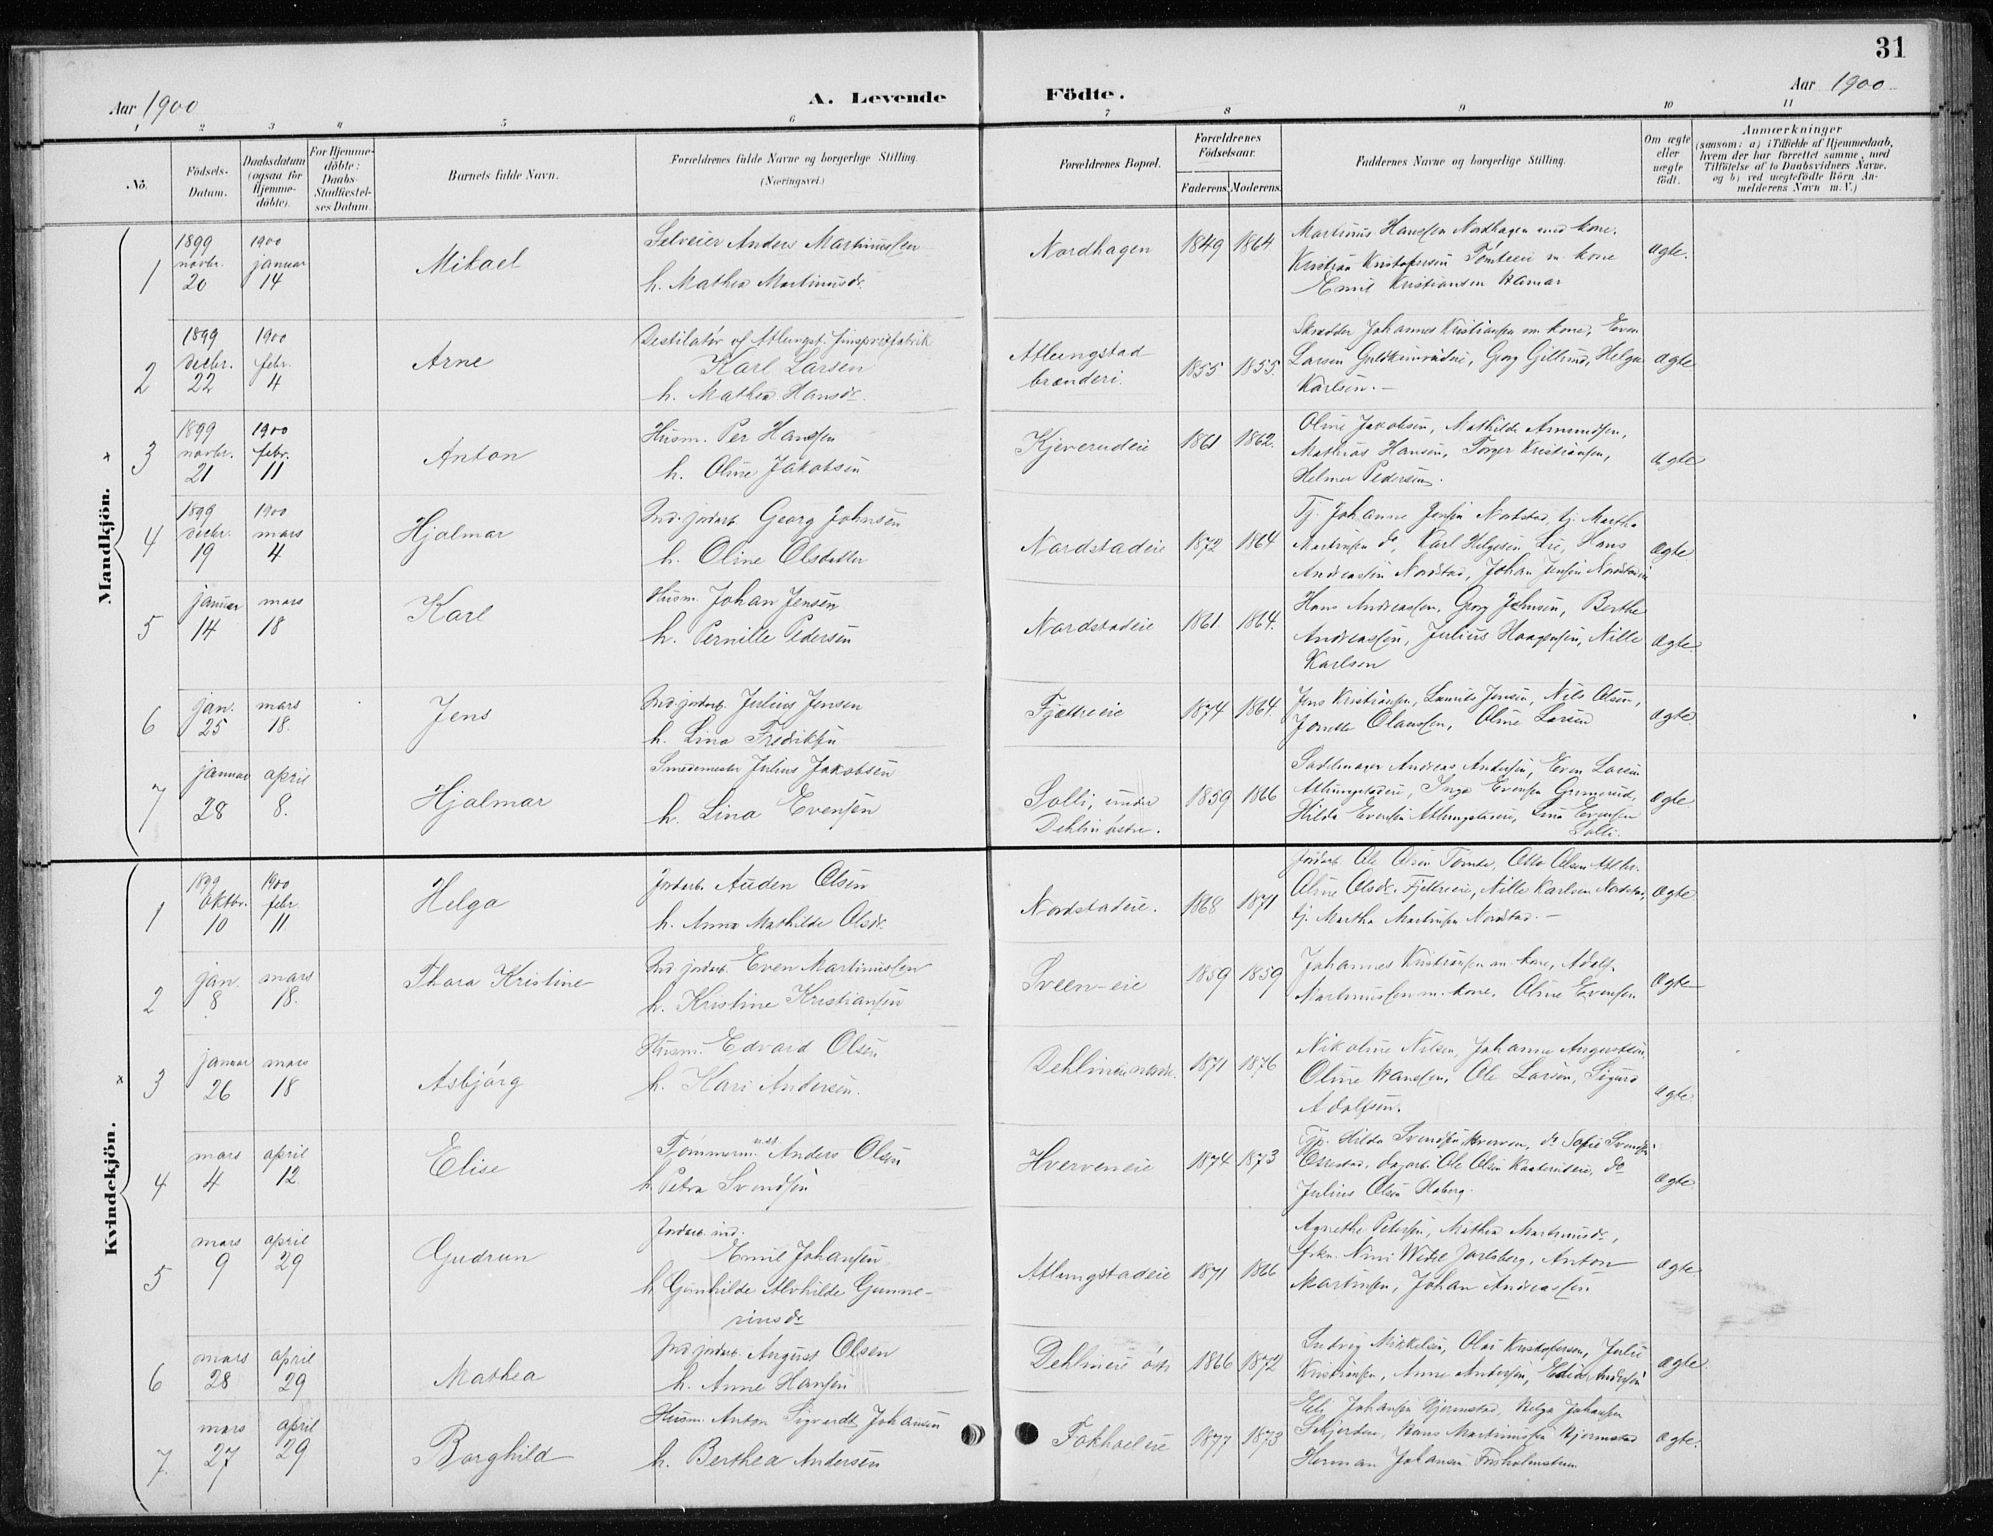 31
Aar 1900
A. Levende Födte.
Aar 1900
1 2 3 4 5 6 7 8 9 10 11
No.
Födsels-Datum.
Daabsdatum (ogsaa for Hjemme-döbte).
For Hjemme-döbte: Daabs-Stadfæstel-ses Datum.
Barnets fulde Navn.
Forældrenes fulde Navne og borgerlige Stilling.
(Næringsvei.)
Forældrenes Bopæl.
Forældrenes Födselsaar.
Faderens. Moderens.
Faddernes Navne og borgerlige Stilling.
Om ægte eller uægte födt.
Anmærkninger
(saasom: a) i Tilfælde af Hjemmedaab,
hvem der har forrettet samme, med
Tilföielse af to Daabsvidners Navne,
og b) ved uægtefödte Börn An-
melderens Navn m. V.)
Mandkjön.
1 1899 novbr. 20 1900 januar 14 Mikael
Selveier Anders Martinussen
h. Mathea Martinusdr.
Nordhagen 1849 1864
Martinus Hanssen Nordhagen med kone.
Kristian Kristofersen Tömteeie m. kone
Emil Kristiansen Hamar
ægte.
2 1899 decbr. 22 1900 febr. 4 Arne
Destilatör of Atlungst.
Karl Larsen
h. Mathea Hansdr.
Atlungstad brænderi. 1855 1855.
Skrædder Johannes Kristiansen m. kone, Even
Larsen Georg Gillund, Helga
Karlsen. —
ægte
3 1899 novbr. 21 1900 febr. 11 Anton
Husm. Per Hansen
h. Oline Jakobsen
Kjeverudeie 1861 1862.
Oline Jakobsen, Mathilde Amundsen,
Mathias Hansen, Torger Kristiansen,
Helmer Pedersen.
ægte
4 1899 decbr. 19 1900 mars 4 Hjalmar
Ind. jordarb. Georg Johnsen
h. Oline Olsdatter
Nordstadeie 1872 1864
Tj. Johanne Jensen Nordstad, tj. Martha
Martinsen do, Karl Helgesen Lie, Hans
Andreassen Nordstad, Johan Jensen Nordstadeie
ægte
5 januar 14 mars 18 Karl
Husm. Johan Jensen
h. Pernille Pedersen
Nordstadeie 1861. 1864.
Hans Andreassen, Georg Johnsen, Berthe
Andreassen, Julius Haagensen, Nille
Karlsen
ægte.
6 jan. 25 mars 18. Jens
Ind. jordarb. Julius Jensen
h. Lina Fredriksen
Fjættreeie 1874 1864.
Jens Kristiansen, Laurits Jensen, Nils Olsen,
Jonette Olaussen, Oline Larsen
ægte
7 januar 28 april 8. Hjalmar
Smedemester Julius Jakobsen
h. Lina Evensen
Solli, under Dehlin östre. 1859 1866
Sadlmager Andreas Andersen, Even Larsen
Atlungstadeie, Inga Evensen Grimerud,
Hilda Evensen Atlungstadeie, Lina Evensen
Solli.
ægte
Kvindekjön.
1 1899 oktbr. 10 1900 febr. 11 Helga
Jordarb. Auden Olsen
h. Anna Mathilde Olsdr.
Nordstadeie. 1868 1871
Jordarb. Ole Olsen Tömte, Otto Olsen
Oline Olsdr. Fjettreeie, Nille Karlsen Nordstad,
tj. Martha Martinsen Nordstad. —
ægte
2 jan. 8 mars 18. Thora Kristine
Ind. jordarb. Even Martinussen
h. Kristine Kristiansen
Sveen-eie 1859 1859
Johannes Kristiansen m. kone, Adolf
Martinussen m. kone. Oline Evensen
ægte
3 januar 26 mars 18 Asbjörg
Husm. Edvard Olsen
h. Kari Andersen.
1871 1876
Nikoline Nilsen, Johanne Augustsen,
Oline Hanssen, Ole Larsen, Sigurd
Adolfsen.
ægte.
4 mars 4 april 12. Elise
Tömmerm. Anders Olsen
h. Petra Svendsen
Hverveneie 1874 1873
Tjp. Hilda Svendsen Hverven, do Sofie Svendsen
dagarb. Ole Olsen do
Julius Olsen Haberg.
ægte.
5 mars 9 april 29 Gudrun
Jordarb. ind.
Emil Johansen
h. Gunhilde Alvhilde Gunne-
riusdr
Atlungstadeie 1871 1866
Agnethe Petersen, Mathea Martinusdr.,
frkn. Nini Wedel Jarlsberg, Anton
Martinsen, Johan Andreassen
ægte
6 mars 28 april 29 Mathea
Ind. jordarb. August Olsen
h. Anne Hansen
Dehlineie öst. 1866 1872
Ludvig Mikkelsen, Olai Kristofersen, Julie
Kristiansen, Anne Andersen, Andersen
ægte
7. mars 27 april 29 Borghild
Husm. Anton Sigvardt Johansen
h. Berthea Andersen
Fokholeie 1877 1873
Eli Johansen Hjermstad, Helga Johansen
Hans Martinussen Hjermstad
Herman Johansen
ægte.